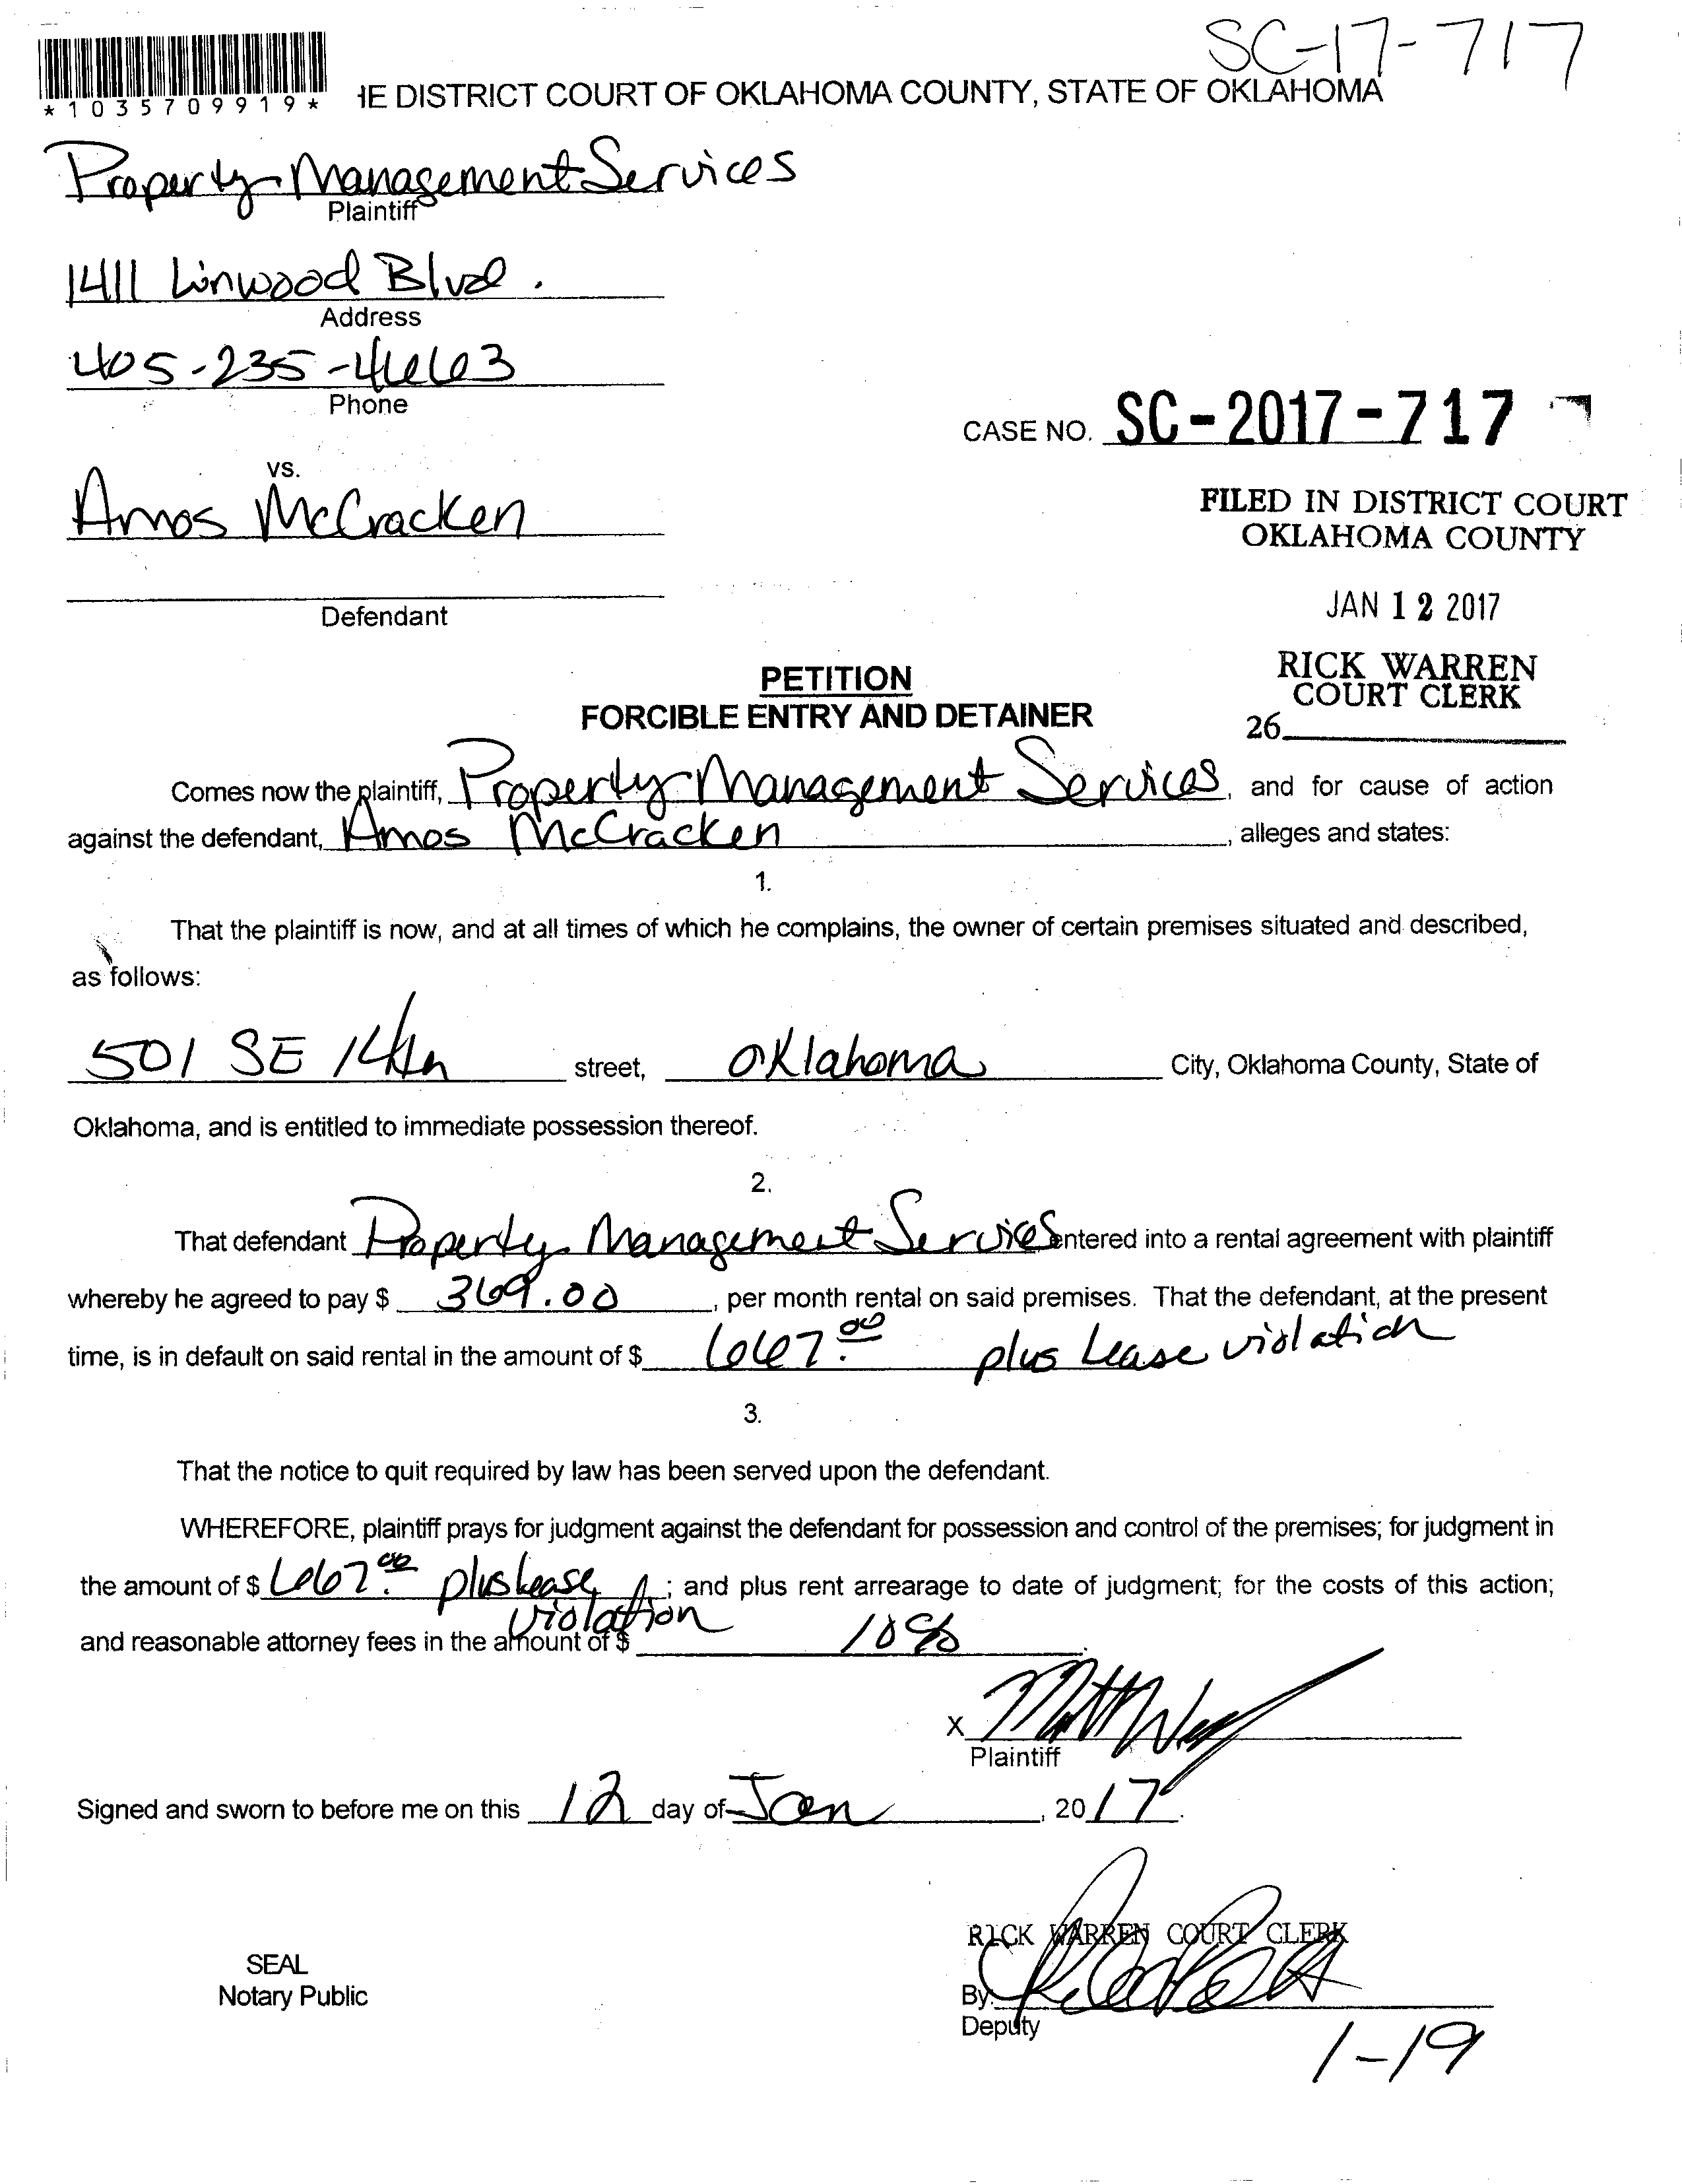 SC-17-717
*1035709919*
HE DISTRICT COURT OF OKLAHOMA COUNTY, STATE OF OKLAHOMA
Property Management Services
Plaintiff
1411 Linwood Blvd.
Address
405-235-4663
Phone
CASE NO. SC-2017-717
vs.
Amos McCracken
FILED IN DISTRICT COURT
OKLAHOMA COUNTY
Defendant
JAN 12 2017
PETITION
FORCIBLE ENTRY AND DETAINER
RICK WARREN
COURT CLERK
26
Comes now the plaintiff, Property Management Services, and for cause of action
against the defendant, Amos McCracken, alleges and states:
1.
That the plaintiff is now, and at all times of which he complains, the owner of certain premises situated and described,
as follows:
501 SE 14th street, Oklahoma City, Oklahoma County, State of
Oklahoma, and is entitled to immediate possession thereof.
2.
That defendant Property Management Services entered into a rental agreement with plaintiff
whereby he agreed to pay $ 369.00, per month rental on said premises. That the defendant, at the present
time, is in default on said rental in the amount of $ 667.00 plus Lease violation
3.
That the notice to quit required by law has been served upon the defendant.
WHEREFORE, plaintiff prays for judgment against the defendant for possession and control of the premises; for judgment in
the amount of $ 667.00 plus lease violation; and plus rent arrearage to date of judgment; for the costs of this action;
and reasonable attorney fees in the amount of $ 10%.
X
Plaintiff
Signed and sworn to before me on this 12 day of Jan, 2017.
RICK WARREN COURT CLERK
SEAL
Notary Public
By:
Deputy
1-19